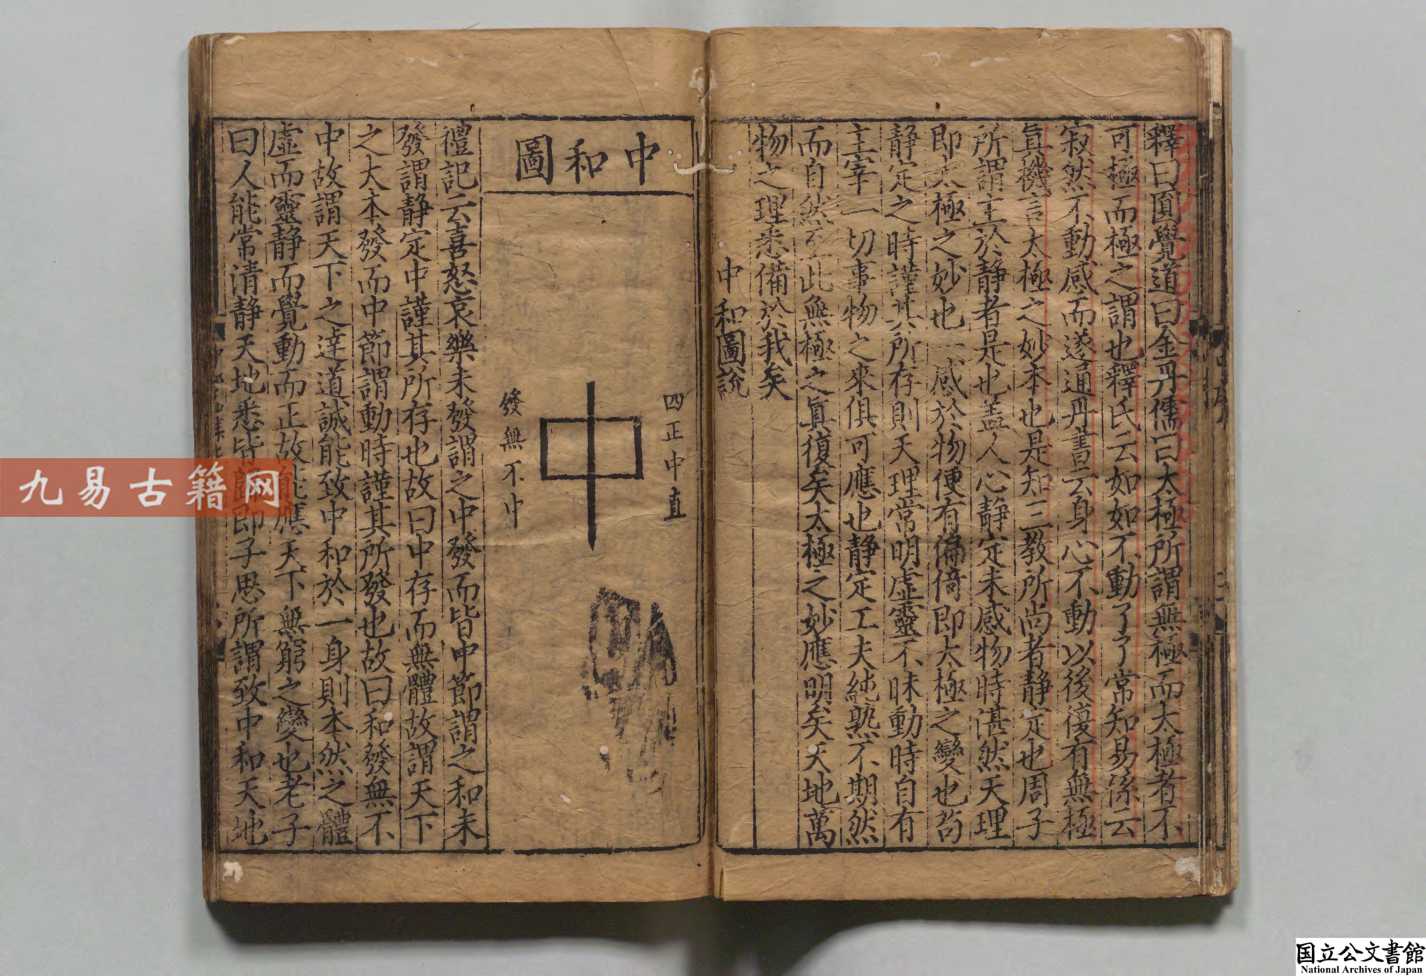 釋曰圎覺道曰金丹儒曰太極所謂無極而太極者不
可極而極之謂也釋氏云如如不動了了常知易係云
寂然不動感而遂通丹書云身心不動以後復有無極
真機言太極之妙本也是知三教所尚者静定也周子
所謂主於静者是也盖人心静定未感物時湛然天理
即太極之妙也一感於物便有偏倚即太極之變也苟
静定之時謹其所存則天理常明虚靈不昧動時自有
主宰一切事物之來俱可應也静定工夫純熟不期然
而自然至此無極之真復矣太極之妙應明矣天地萬
物之理悉備於我矣
中和圖說
中和圖
四正中直
中
發無不中
禮記云喜怒哀樂未發謂之中發而皆中節謂之和未
發謂静定中謹其所存也故曰中存而無體故謂天下
之大本發而中節謂動時謹其所發也故曰和發無不
中故謂天下之達道誠能致中和於一身則本然之體
虚而靈静而覺動而正故能應天下無窮之變也老子
曰人能常清静天地悉皆歸即子思所謂致中和天地
九易古籍网
国立公文書館
National Archives of Japan